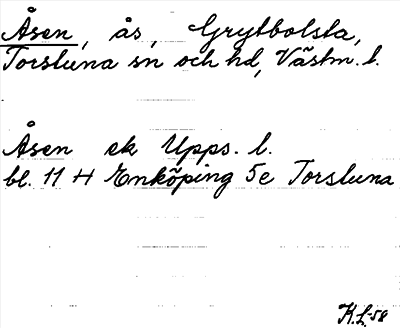 Åsen, ås, Grytbolsta,
Torsluna sn och hd, Västm. l.
Åsen ek Upps. l.
bl. 11 H Enköping 5e Torsluna
K.L-58